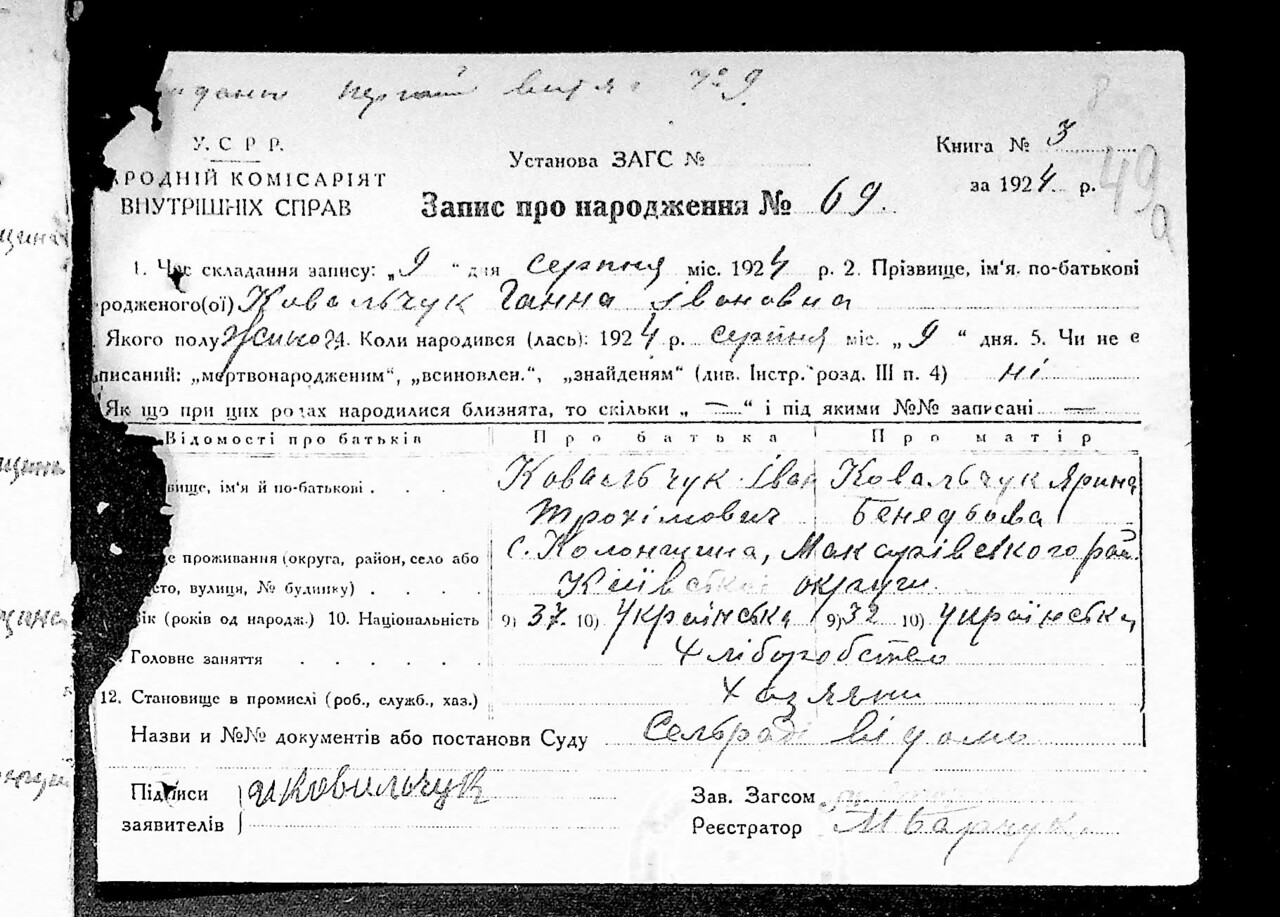 видано перший витяг № 9.
У. С. Р. Р.
АРОДНІЙ КОМІСАРІЯТ
ВНУТРІШНІХ СПРАВ
Установа ЗАГС №
Книга № 3
за 1924 р.
49а
Запис про народження № 69.
1. Час складання запису: „9“ дня серпня міс. 1924 р. 2. Прізвище, ім'я. по-батькові
родженого(ої) Ковальчук Ганна Івановна
Якого полу 4. Коли народився (лась): 1924 р. серпня міс. „9“ дня. 5. Чи не є
писаний: „мертвонародженим“, „всиновлен.“, „знайденям“ (див. Інстр. розд. III п. 4) ні
Як що при цих родах народилися близнята, то скільки „—“ і під якими №№ записані —
Відомості про батьків Про батька Про матір
вище, ім'я й по-батькові . . . Ковальчук Іван Ковальчук Ярина
Трохімович
це проживання (округа, район, село або с. Колонщина, Макарівського рай.
істо, вулиця, № будинку) . . . . Київської округи.
вік (років од народж.) 10. Національність 9) 37. 10) Українська 9) 32 10) українська
Головне заняття . . . . . . Хліборобство
12. Становище в промислі (роб., служб., хаз.) Хазяїни
Назви и №№ документів або постанови Суду Сельраді відомо
Підписи Ковальчук
заявителів
Зав. Загсом
Реєстратор